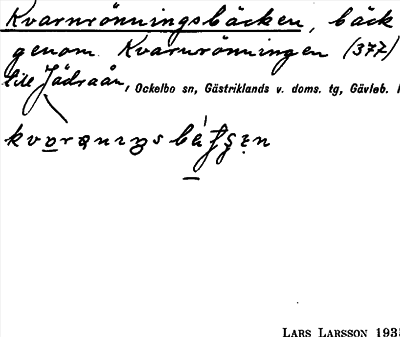 Kvarnrönningsbäcken, bäck
genom Kvarnrönningen (377)
till Jädraån, Ockelbo sn, Gästriklands v. doms. tg, Gävleb.
LARS LARSSON 193